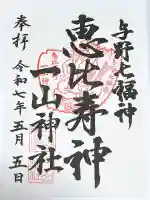 与野七福神
恵比寿神
一山神社
奉拝 令和七年五月五日